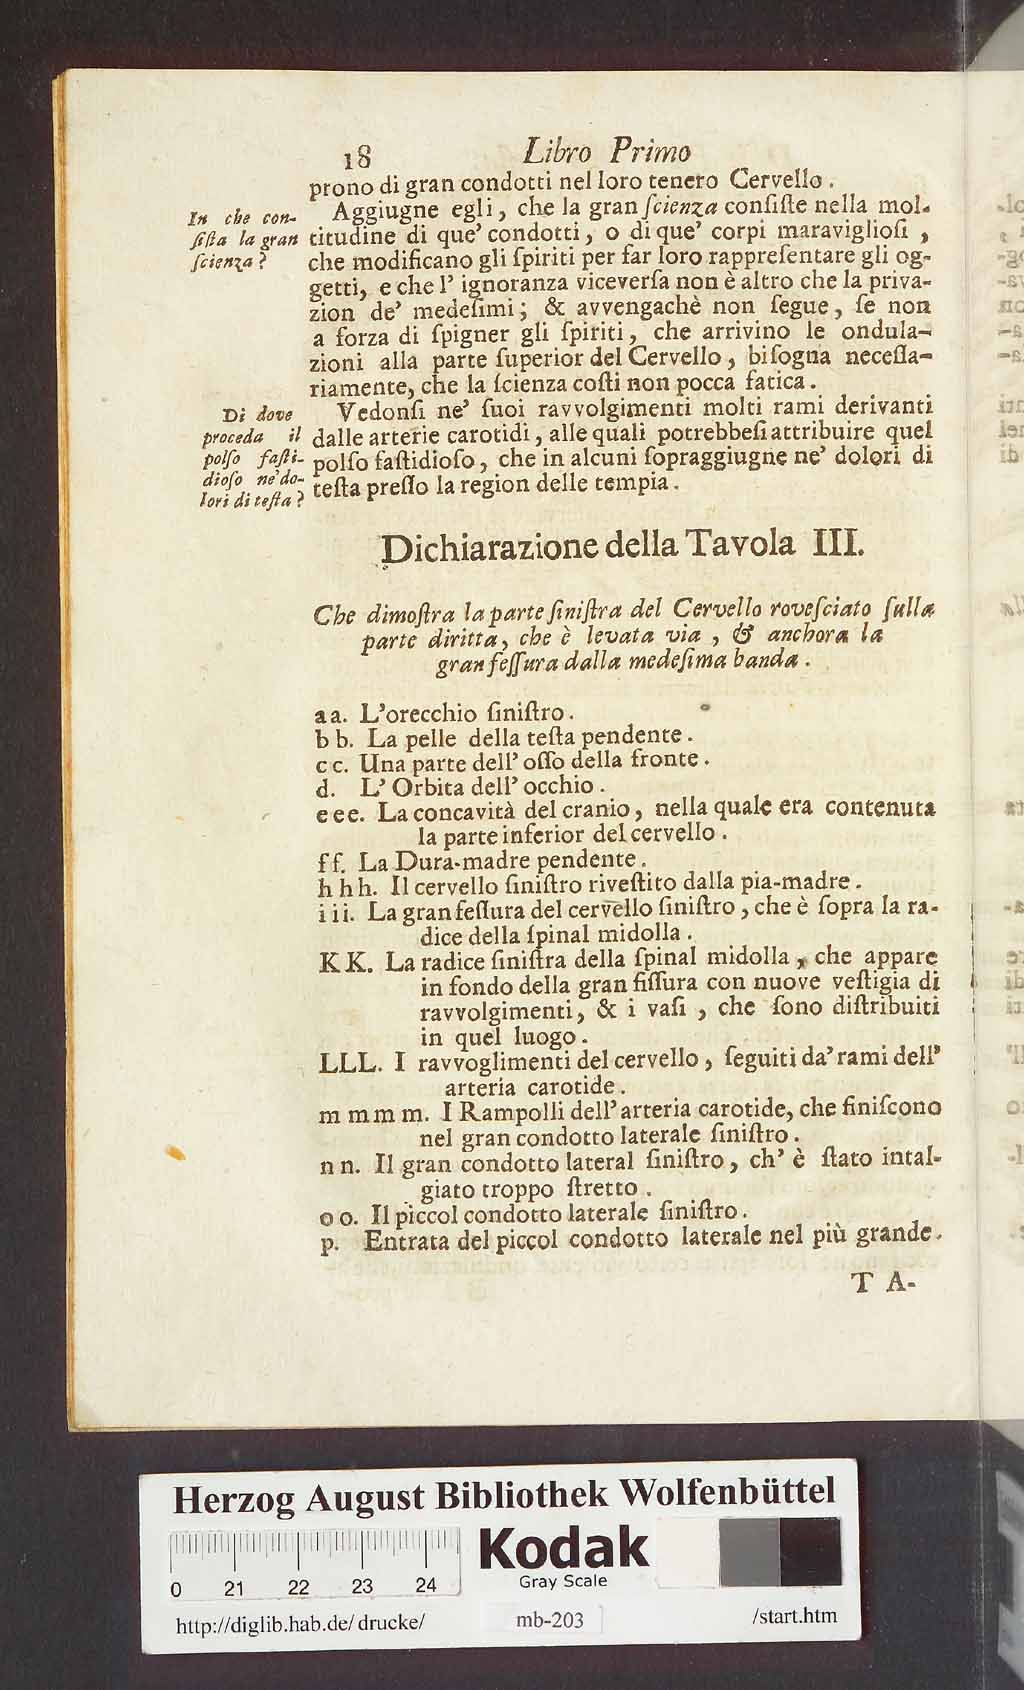 18 Libro Primo
prono di gran condotti nel loro tenero Cervello.
In che con-
ſiſta la gran
ſcienza?
Aggiugne egli, che la gran ſcienza conſiſte nella mol-
titudine di que' condotti, o di que' corpi maraviglioſi,
che modificano gli ſpiriti per far loro rappreſentare gli og-
getti, e che l' ignoranza viceverſa non è altro che la priva-
zion de' medeſimi; & avvengachè non ſegue, ſe non
a forza di ſpigner gli ſpiriti, che arrivino le ondula-
zioni alla parte ſuperior del Cervello, biſogna neceſſa-
riamente, che la ſcienza coſti non pocca fatica.
Di dove
proceda il
polſo faſti-
dioſo ne' do-
lori di teſta?
Vedonſi ne' ſuoi ravvolgimenti molti rami derivanti
dalle arterie carotidi, alle quali potrebbeſi attribuire quel
polſo faſtidioſo, che in alcuni ſopraggiugne ne' dolori di
teſta preſſo la region delle tempia.
Dichiarazione della Tavola III.
Che dimoſtra la parte ſiniſtra del Cervello roveſciato ſulla
parte diritta, che è levata via, & anchora la
gran feſſura dalla medeſima banda.
aa. L'orecchio ſiniſtro.
b b. La pelle della teſta pendente.
c c. Una parte dell' oſſo della fronte.
d. L' Orbita dell' occhio.
eee. La concavità del cranio, nella quale era contenuta
la parte inferior del cervello.
ff. La Dura-madre pendente.
h h h. Il cervello ſiniſtro riveſtito dalla pia-madre.
iii. La gran feſſura del cervello ſiniſtro, che è ſopra la ra-
dice della ſpinal midolla.
KK. La radice ſiniſtra della ſpinal midolla, che appare
in fondo della gran fiſſura con nuove veſtigia di
ravvolgimenti, & i vaſi, che ſono diſtribuiti
in quel luogo.
LLL. I ravvoglimenti del cervello, ſeguiti da' rami dell'
arteria carotide.
m m m m. I Rampolli dell' arteria carotide, che finiſcono
nel gran condotto laterale ſiniſtro.
n n. Il gran condotto lateral ſiniſtro, ch' è ſtato intal-
giato troppo ſtretto.
oo. Il piccol condotto laterale ſiniſtro.
p. Entrata del piccol condotto laterale nel più grande.
T A-
Herzog August Bibliothek Wolfenbüttel
0 21 22 23 24
Kodak
Gray Scale
http://diglib.hab.de/drucke/ mb-203 /start.htm